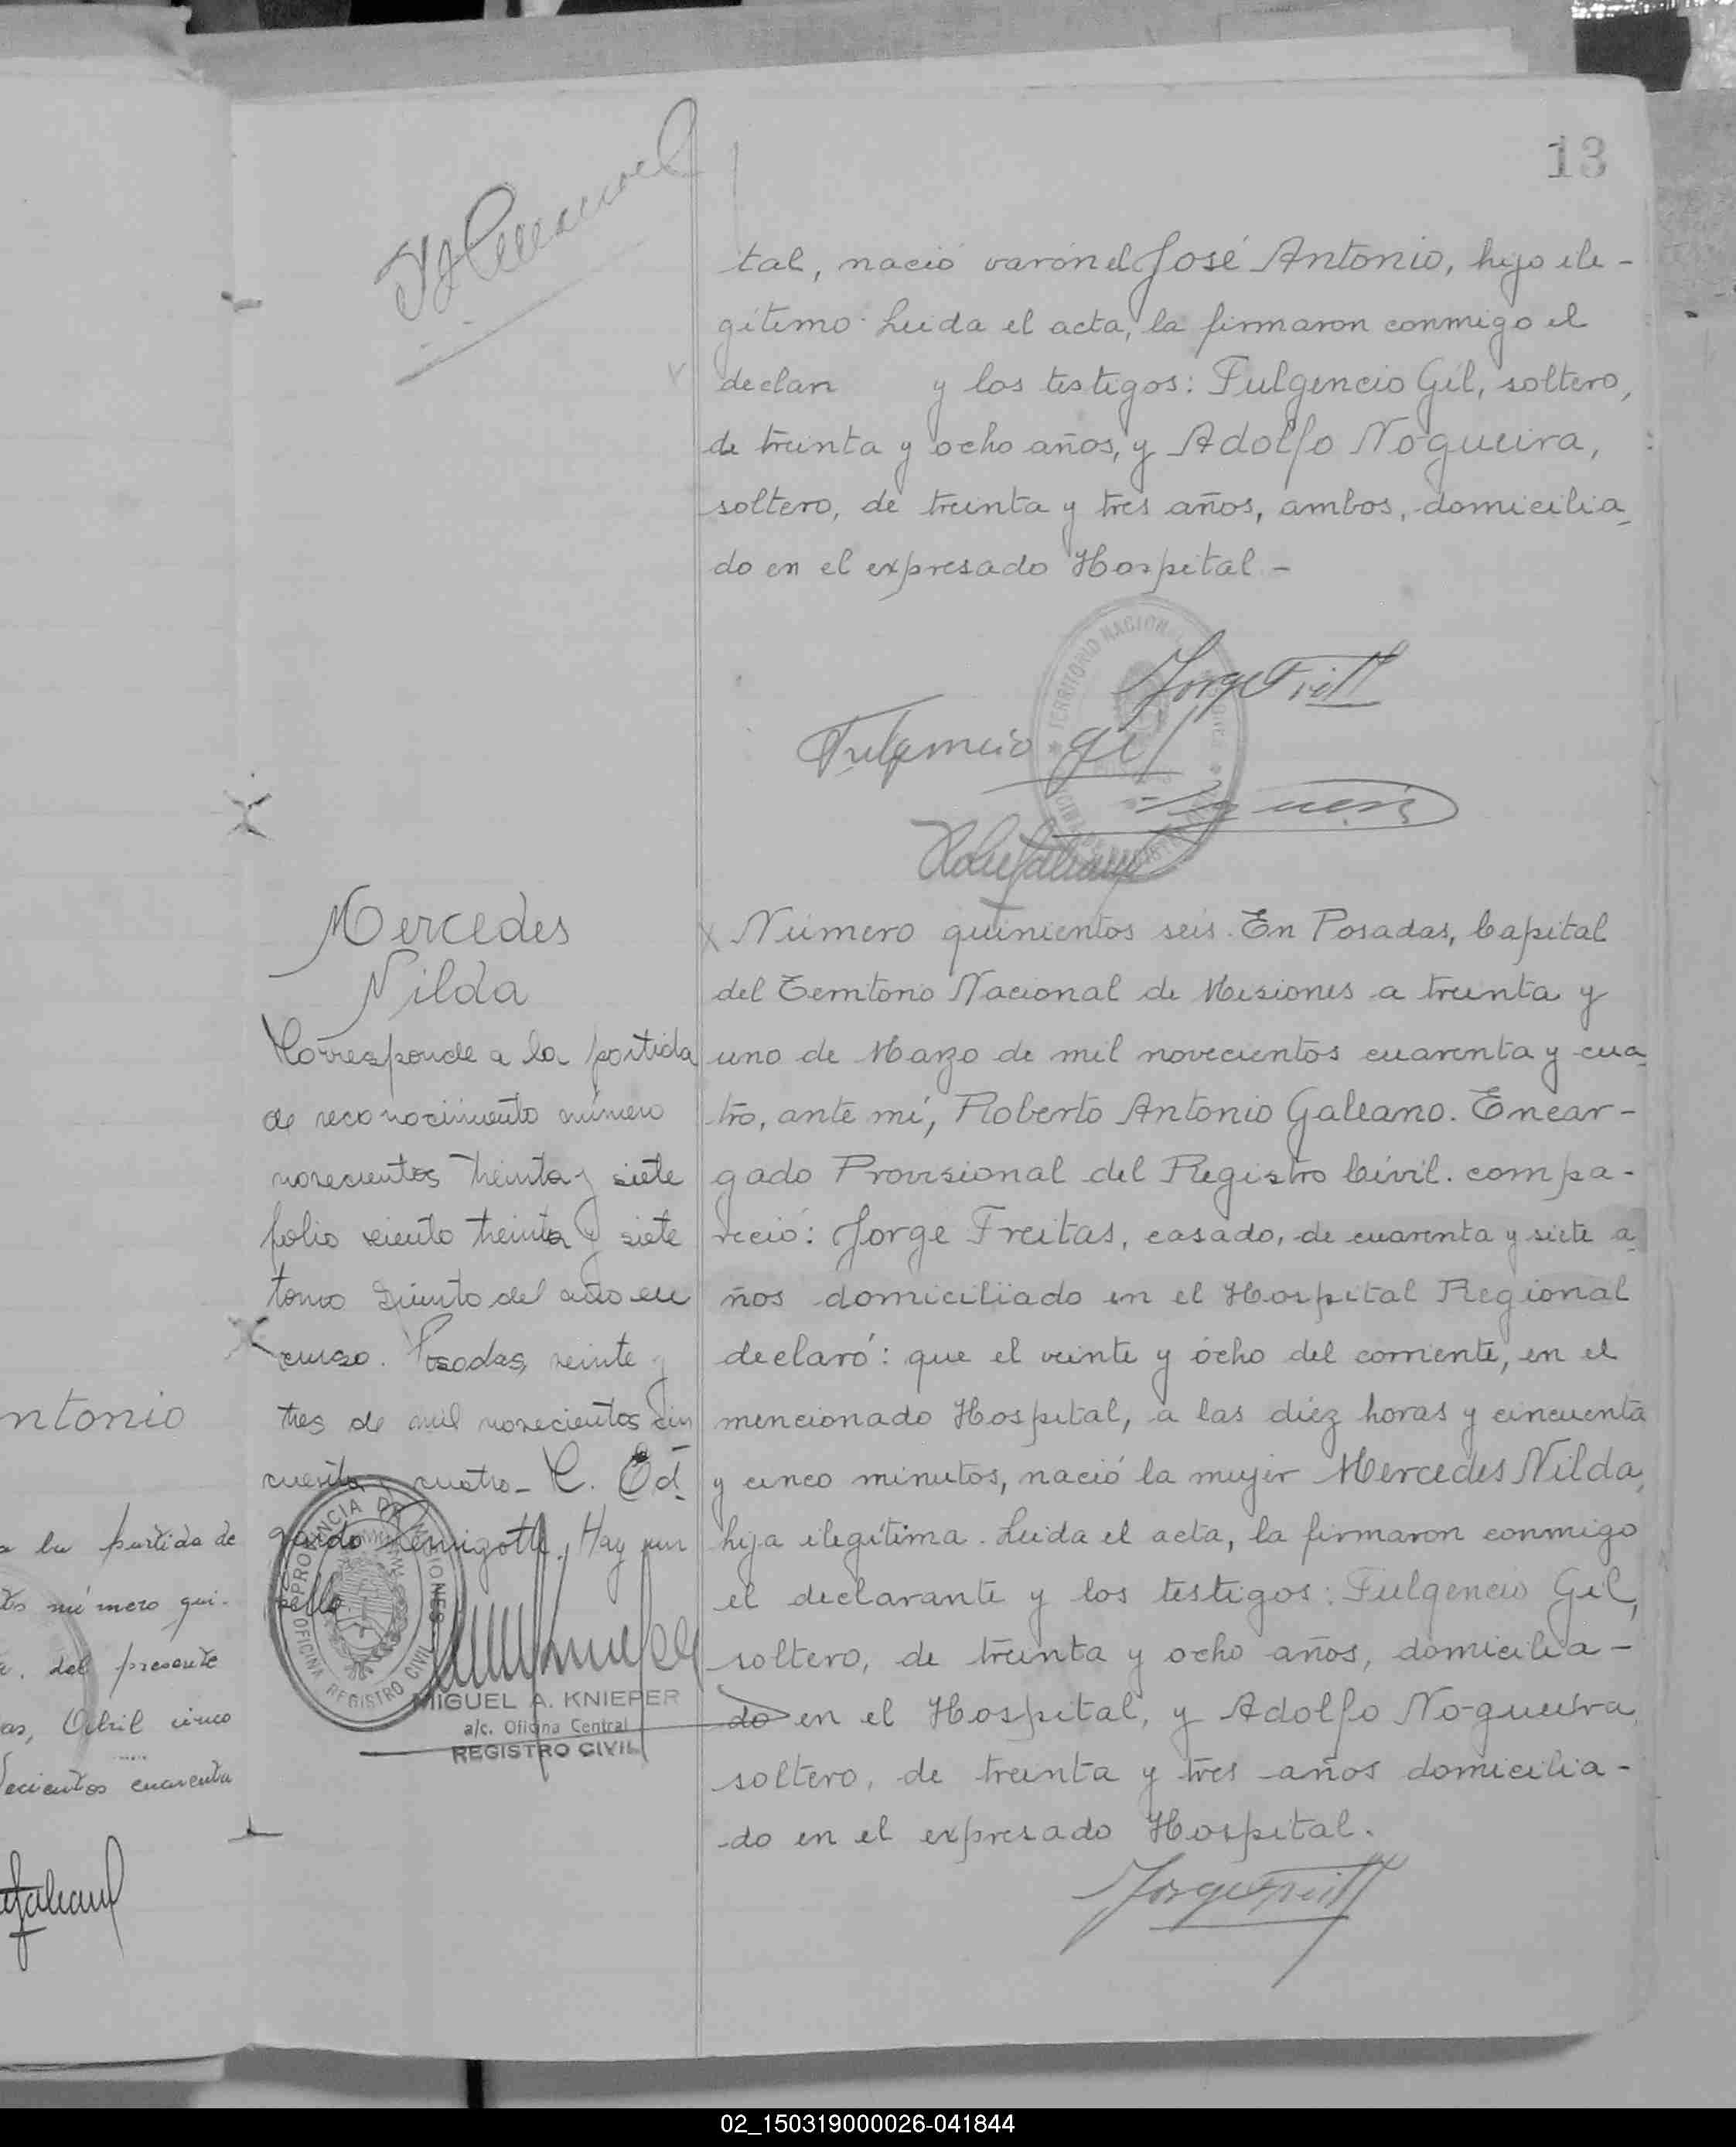 13
tal, nació varón el José Antonio, hijo ile-
gítimo. Leida el acta, la firmaron conmigo el
declan y los testigos: Fulgencio Gil, soltero,
de treinta y ocho años, y Adolfo No-gueira,
soltero, de treinta y tres años, ambos, domicilia-
do en el expresado Hospital -
TERRITORIO NACIONAL
Jorge Freitas
Fulgencio Gil
Mercedes
Nilda
Corresponde a la partida
de reconocimiento número
novecientos treinta y siete
folio ciento treinta y siete
tomo quinto del año en
curso. Posadas, veinte y
tres de mil novecientos cin
cuenta y cuatro_ C. Ed
gardo. Hay un
sello
PROVINCIA DE MISIONES
OFICINA REGISTRO CIVIL
MIGUEL A. KNIEPER
a/c. Oficina Central
REGISTRO CIVIL
Número quinientos seis. En Posadas, Capital
del Territorio Nacional de Misiones a treinta y
uno de Marzo de mil novecientos cuarenta y cua-
tro, ante mí, Roberto Antonio Galeano. Encar-
gado Provisional del Registro Civil. compa-
reció: Jorge Freitas, casado, de cuarenta y siete a-
ños domiciliado en el Hospital Regional
declaró: que el veinte y ocho del corriente, en el
mencionado Hospital, a las diez horas y cincuenta
y cinco minutos, nació la mujer Mercedes Nilda,
hija ilegítima. Leida el acta, la firmaron conmigo
el declarante y los testigos: Fulgencio Gil,
soltero, de treinta y ocho años, domicilia-
do en el Hospital, y Adolfo No-gueira,
soltero, de treinta y tres años domicilia-
do en el expresado Hospital.
Jorge Freitas
ntonio
a la partida de
número qui-
del presente
as, Abril cinco
ecientos cuarenta
02_150319000026-041844